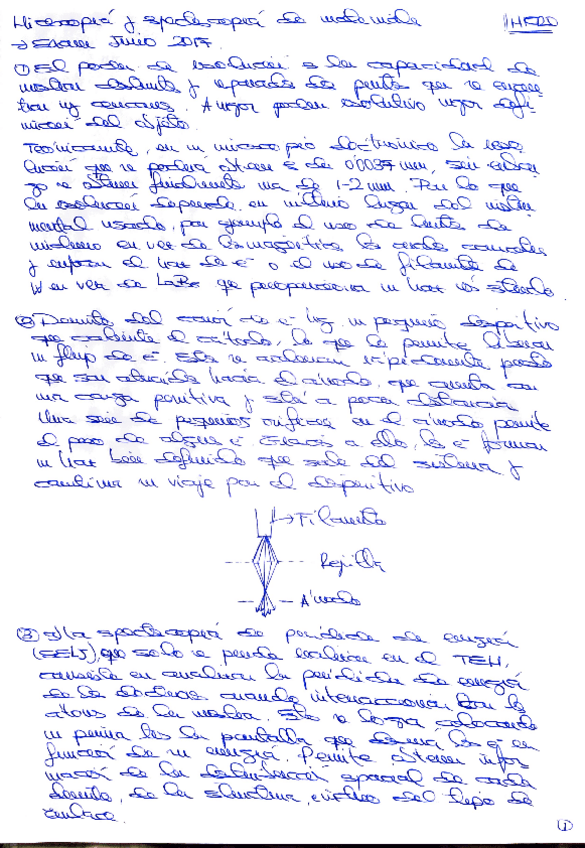 Microscopía y espectroscopía de materiales
→ Examen Junio 2017.
① El poder de resolución es la capacidad de
mostrar distintos y separados dos puntos que se encuen
tran muy cercanos. A mejor poder resolutivo mejor defi-
nición del objeto.
Teóricamente, en un microscopio electrónico la reso
lución que se podría obtener es de 0'0037 nm, sin embar
go se obtiene finalmente una de 1-2 nm. Por lo que
la resolución depende, en último lugar del instru
mental usado, por ejemplo el uso de lentes de
en vez de las magnéticas las
y enfocan el haz de e⁻ o el uso de filamento de
W en vez de LaB₆ que proporciona un haz más
② Dentro del cañón de e⁻ hay un pequeño dispositivo
que calienta el cátodo, lo que le permite liberar
un flujo de e⁻. Estos se aceleran rápidamente puesto
que son atraídos hacia el ánodo, que cuenta con
una carga positiva y está a poca distancia
Una serie de pequeños orificios en el ánodo permite
el paso de algunos e⁻. Gracias a ello, los e⁻ forman
un haz bien definido que sale del sistema y
continúa su viaje por el dispositivo
→ Filamento
Rejilla
Ánodo
③ a) La espectroscopía de pérdida de energía
(EELS), que solo se puede realizar en el TEM,
consiste en analizar la pérdida de energía
de los electrones cuando interaccionan con los
átomos de la muestra. Esto se logra colocando
un prisma tras la pantalla que desvía los e⁻ en
función de su energía. Permite obtener infor
mación de la distribución espacial de cada
elemento, de la estructura, e incluso del tipo de
enlace.
①